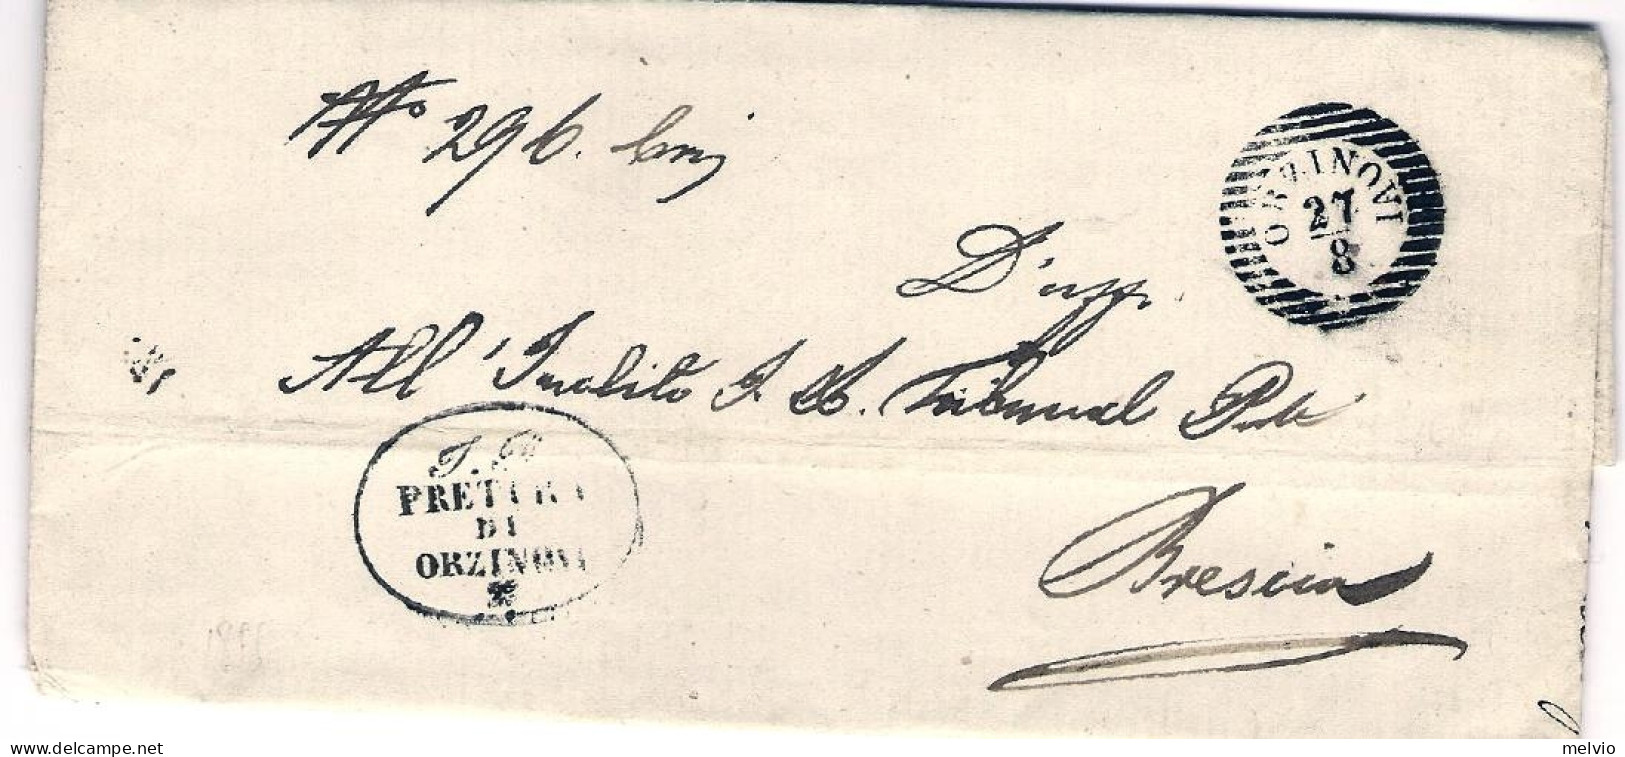 No 296. crim
ORZINOVI
27
8
D'uff.
All'Inclito I. R. Tribunal Prov.
I. R.
PRETURA
DI
ORZINOVI
Brescia
delcampe.net
melvio